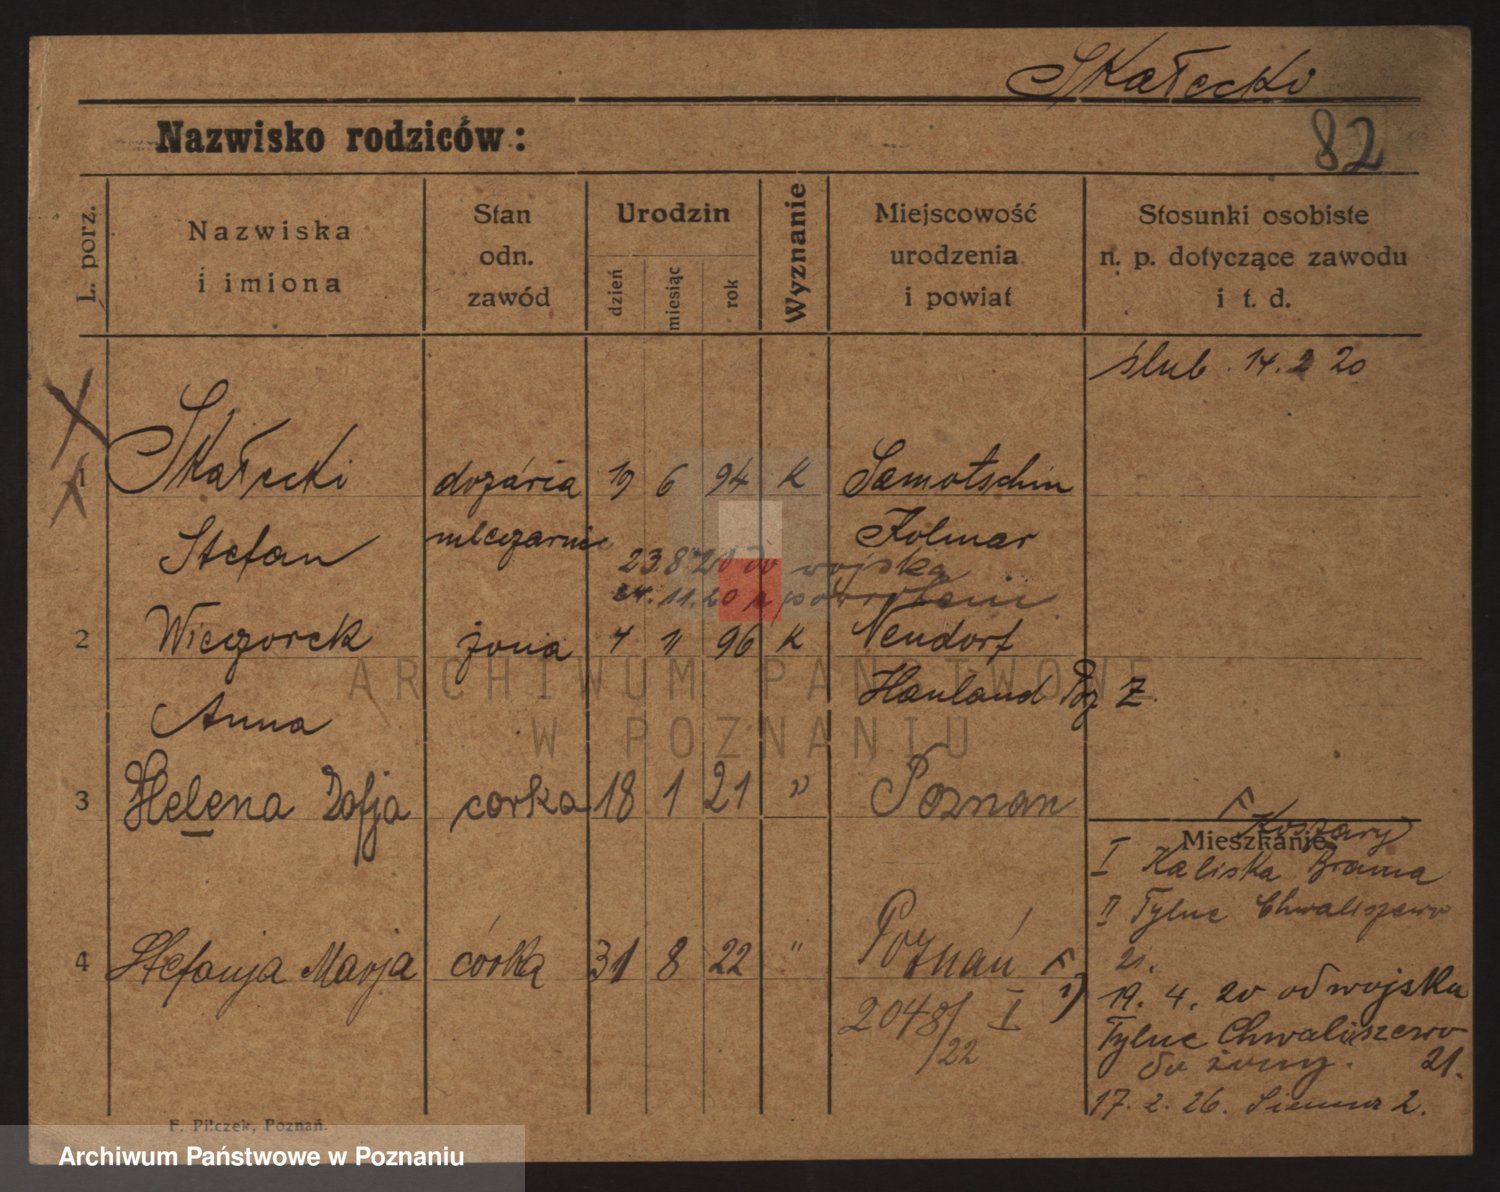 Skałecki
Nazwisko rodziców:
82
L. porz.
Nazwiska
i imiona
Stan
odn.
zawód
Urodzin
dzień
miesiąc
rok
Wyznanie
Miejscowość
urodzenia
i powiat
Stosunki osobiste
n. p. dotyczące zawodu
i t. d.
ślub 14. 2 20
1 Skałecki dozórca 19 6 94 K Samotschin
Stefan mleczarnie Kolmar
23.8 20 do wojska
24. 11. 20 z powrotem
2 Wieczorek żona 7 11 96 K Neudorf
Anna Hauland Poz Z.
3 Helena Zofja corka 18 1 21 " Poznan
Mieszkanie:
Koszary
I Kaliska Brama
II Tylne Chwaliszewo
21.
4 Stefanja Marja córka 31 8 22 " Poznań
2048/22 I
19. 4. 20 od wojska
Tylne Chwaliszewo
do żony. 21.
17. 2. 26. 2.
F. Pilczek, Poznań.
ARCHIWUM PAŃSTWOWE
W POZNANIU
Archiwum Państwowe w Poznaniu